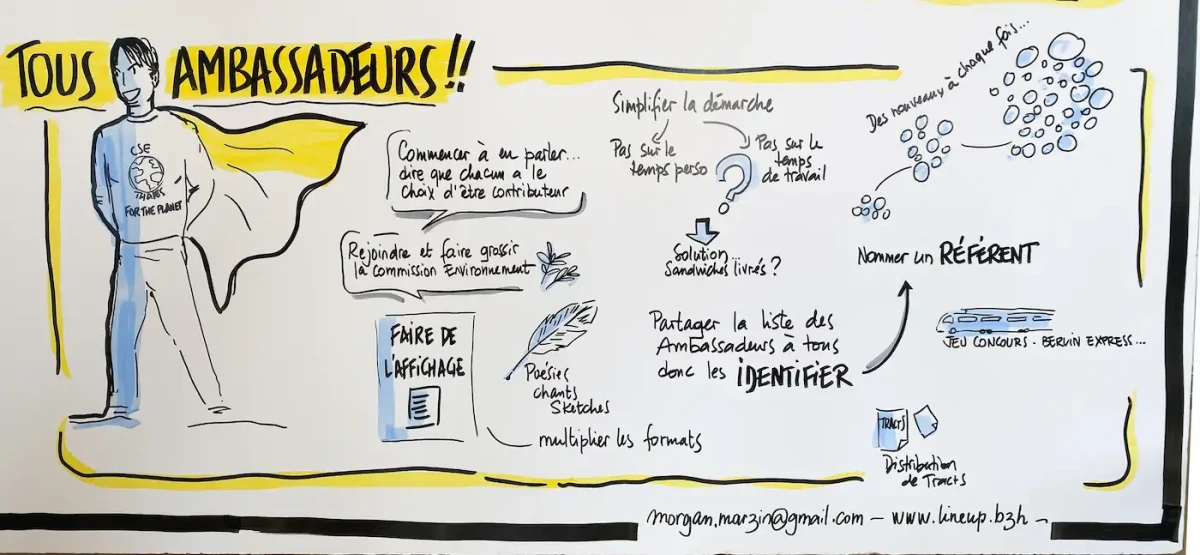 TOUS AMBASSADEURS !!
CSE
THALES
FOR THE PLANET
Commencer à en parler...
dire que chacun a le
choix d'être contributeur
Rejoindre et faire grossir
la commission Environnement
FAIRE DE
L'AFFICHAGE
Poésies
chants
Sketches
multiplier les formats
Simplifier la démarche
Pas sur le
temps perso
?
Pas sur le
temps
de travail
Solution
Sandwiches livrés ?
Partager la liste des
Ambassadeurs à tous
donc les IDENTIFIER
Des nouveaux à chaque fois...
Nommer un RÉFÉRENT
JEU CONCOURS - BERVIN EXPRESS...
TRACTS
Distribution
de Tracts
morgan.marzin@gmail.com - www.lineup.bzh -